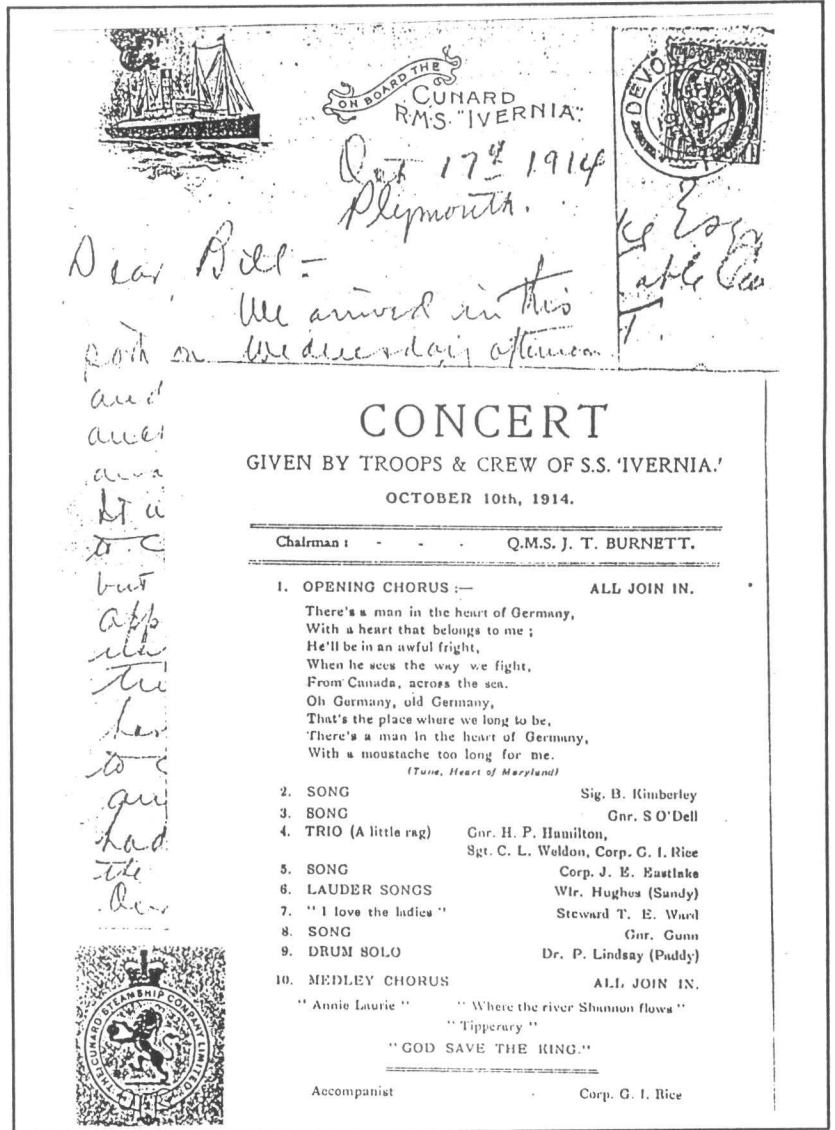 ON BOARD THE
CUNARD
R.M.S. "IVERNIA".
Oct 17th 1914
Plymouth.
DEVO
Esq
Dear Bill -
We arrived in this
port on Wednesday afternoon
and
but
app
to C
had
the
CONCERT
GIVEN BY TROOPS & CREW OF S.S. 'IVERNIA.'
OCTOBER 10th, 1914.
Chairman : - - - Q.M.S. J. T. BURNETT.
1. OPENING CHORUS :— ALL JOIN IN.
There's a man in the heart of Germany,
With a heart that belongs to me ;
He'll be in an awful fright,
When he sees the way we fight,
From Canada, across the sea.
Oh Germany, old Germany,
That's the place where we long to be,
There's a man in the heart of Germany,
With a moustache too long for me.
(Tune, Heart of Maryland)
2. SONG Sig. B. Kimberley
3. SONG Gnr. S O'Dell
4. TRIO (A little rag) Gnr. H. P. Hamilton,
Sgt. C. L. Weldon, Corp. G. I. Rice
5. SONG Corp. J. E. Eastlake
6. LAUDER SONGS Wlr. Hughes (Sandy)
7. "I love the ladies" Steward T. E. Ward
8. SONG Gnr. Gunn
9. DRUM SOLO Dr. P. Lindsay (Paddy)
10. MEDLEY CHORUS ALL JOIN IN.
"Annie Laurie" "Where the river Shannon flows"
"Tipperary"
"GOD SAVE THE KING."
Accompanist - Corp. G. I. Rice
THE CUNARD STEAMSHIP COMPANY LIMITED